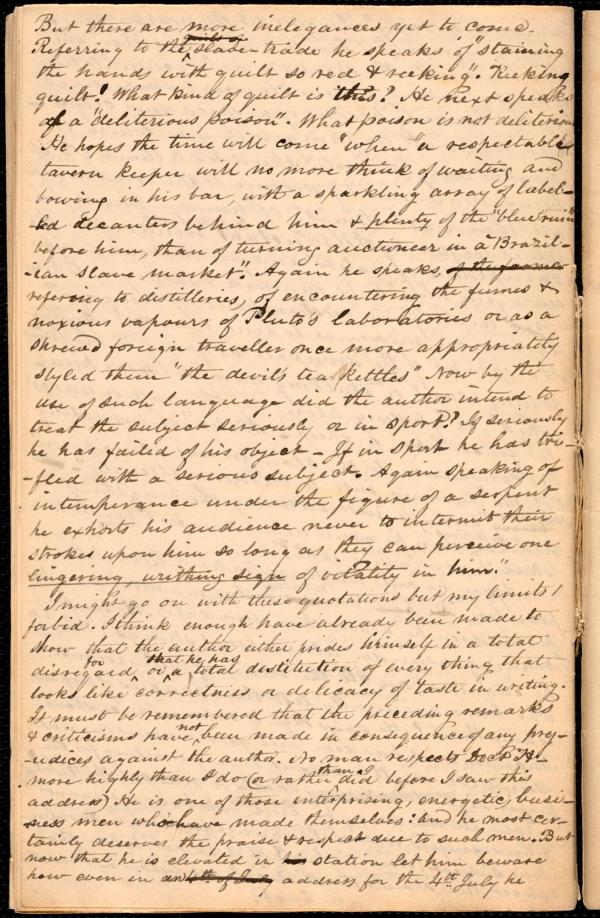 But there are more inelegances yet to come.
Referring to the guilt of slave-trade he speaks of "staining
the hands with guilt so red & reeking". Reeking
guilt! What kind of guilt is this? He next speaks
of a "deliterious poison". What poison is not deliterious
He hopes the time will come "when "a respectable
tavern keeper will no more think of waiting and
bowing in his bar, with a sparkling array of label-
-led decanters behind him & plenty of the "blue ruin"
before him, than of turning auctioneer in a Brazil-
-ian slave market". Again he speaks, of the former
refering to distilleries, of encountering the fumes &
noxious vapours of Pluto's laboratories or as a
shrewd foreign traveller once more appropriately
styled them "the devil's tea kettles" Now by the
use of such language did the author intend to
treat the subject seriously or in sport? If seriously
he has failed of his object - If in sport he has tri-
-fled with a serious subject. Again speaking of
intemperance under the figure of a serpent
he exhorts his audience never to intermit their
strokes upon him so long as they can perceive one
lingering, writhing sign of vitality in him."
I might go on with these quotations but my limits
forbid. I think enough have already been made to
show that the author either prides himself in a total
disregard for or that he has a total destitution of every thing that
looks like correctness or delicacy of taste in writing.
It must be remembered that the preceding remarks
& criticisms have not been made in consequence of any prej-
-udices against the author. No man respects Doct H-
more highly than I do (or rather than I did before I saw this
address) He is one of those enterprising, energetic, busi-
-ness men who have made themselves: and he most cer-
tainly deserves the praise & respect due to such men. But
now that he is elevated in his station let him beware
how even in an 4th of July address for the 4th July he